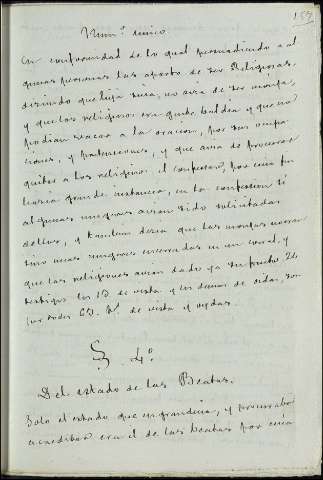 159
Num.º unico
En conformidad de lo qual persuadiendo a al
gunas personas las aparto de ser Religiosas.
diziendo que hija mia, no avia de ser monja,
y que las religiosas era gente baldia y que no
podian vacar a la oracion, por sus ocupa
ciones, y pretenciones, y que avia de procurar
quitar a los religiosos el confesar, por cuia
hacia grande instancia, en la confesion si
algunas mugeres avian sido solicitadas
dellos, y tambien decia que las monjas no eran
sino unas mugeres encerradas en un corral. y
que las religiones avian dado ya su fruto, 26
testigos los 13 de vista y los demas de oidas, son
con todos 63. de vista y oydas.
§ 4º.
Del estado de las Beatas.
Solo el estado que engrandecia, y procuraba
acreditar era el de las beatas por cuia